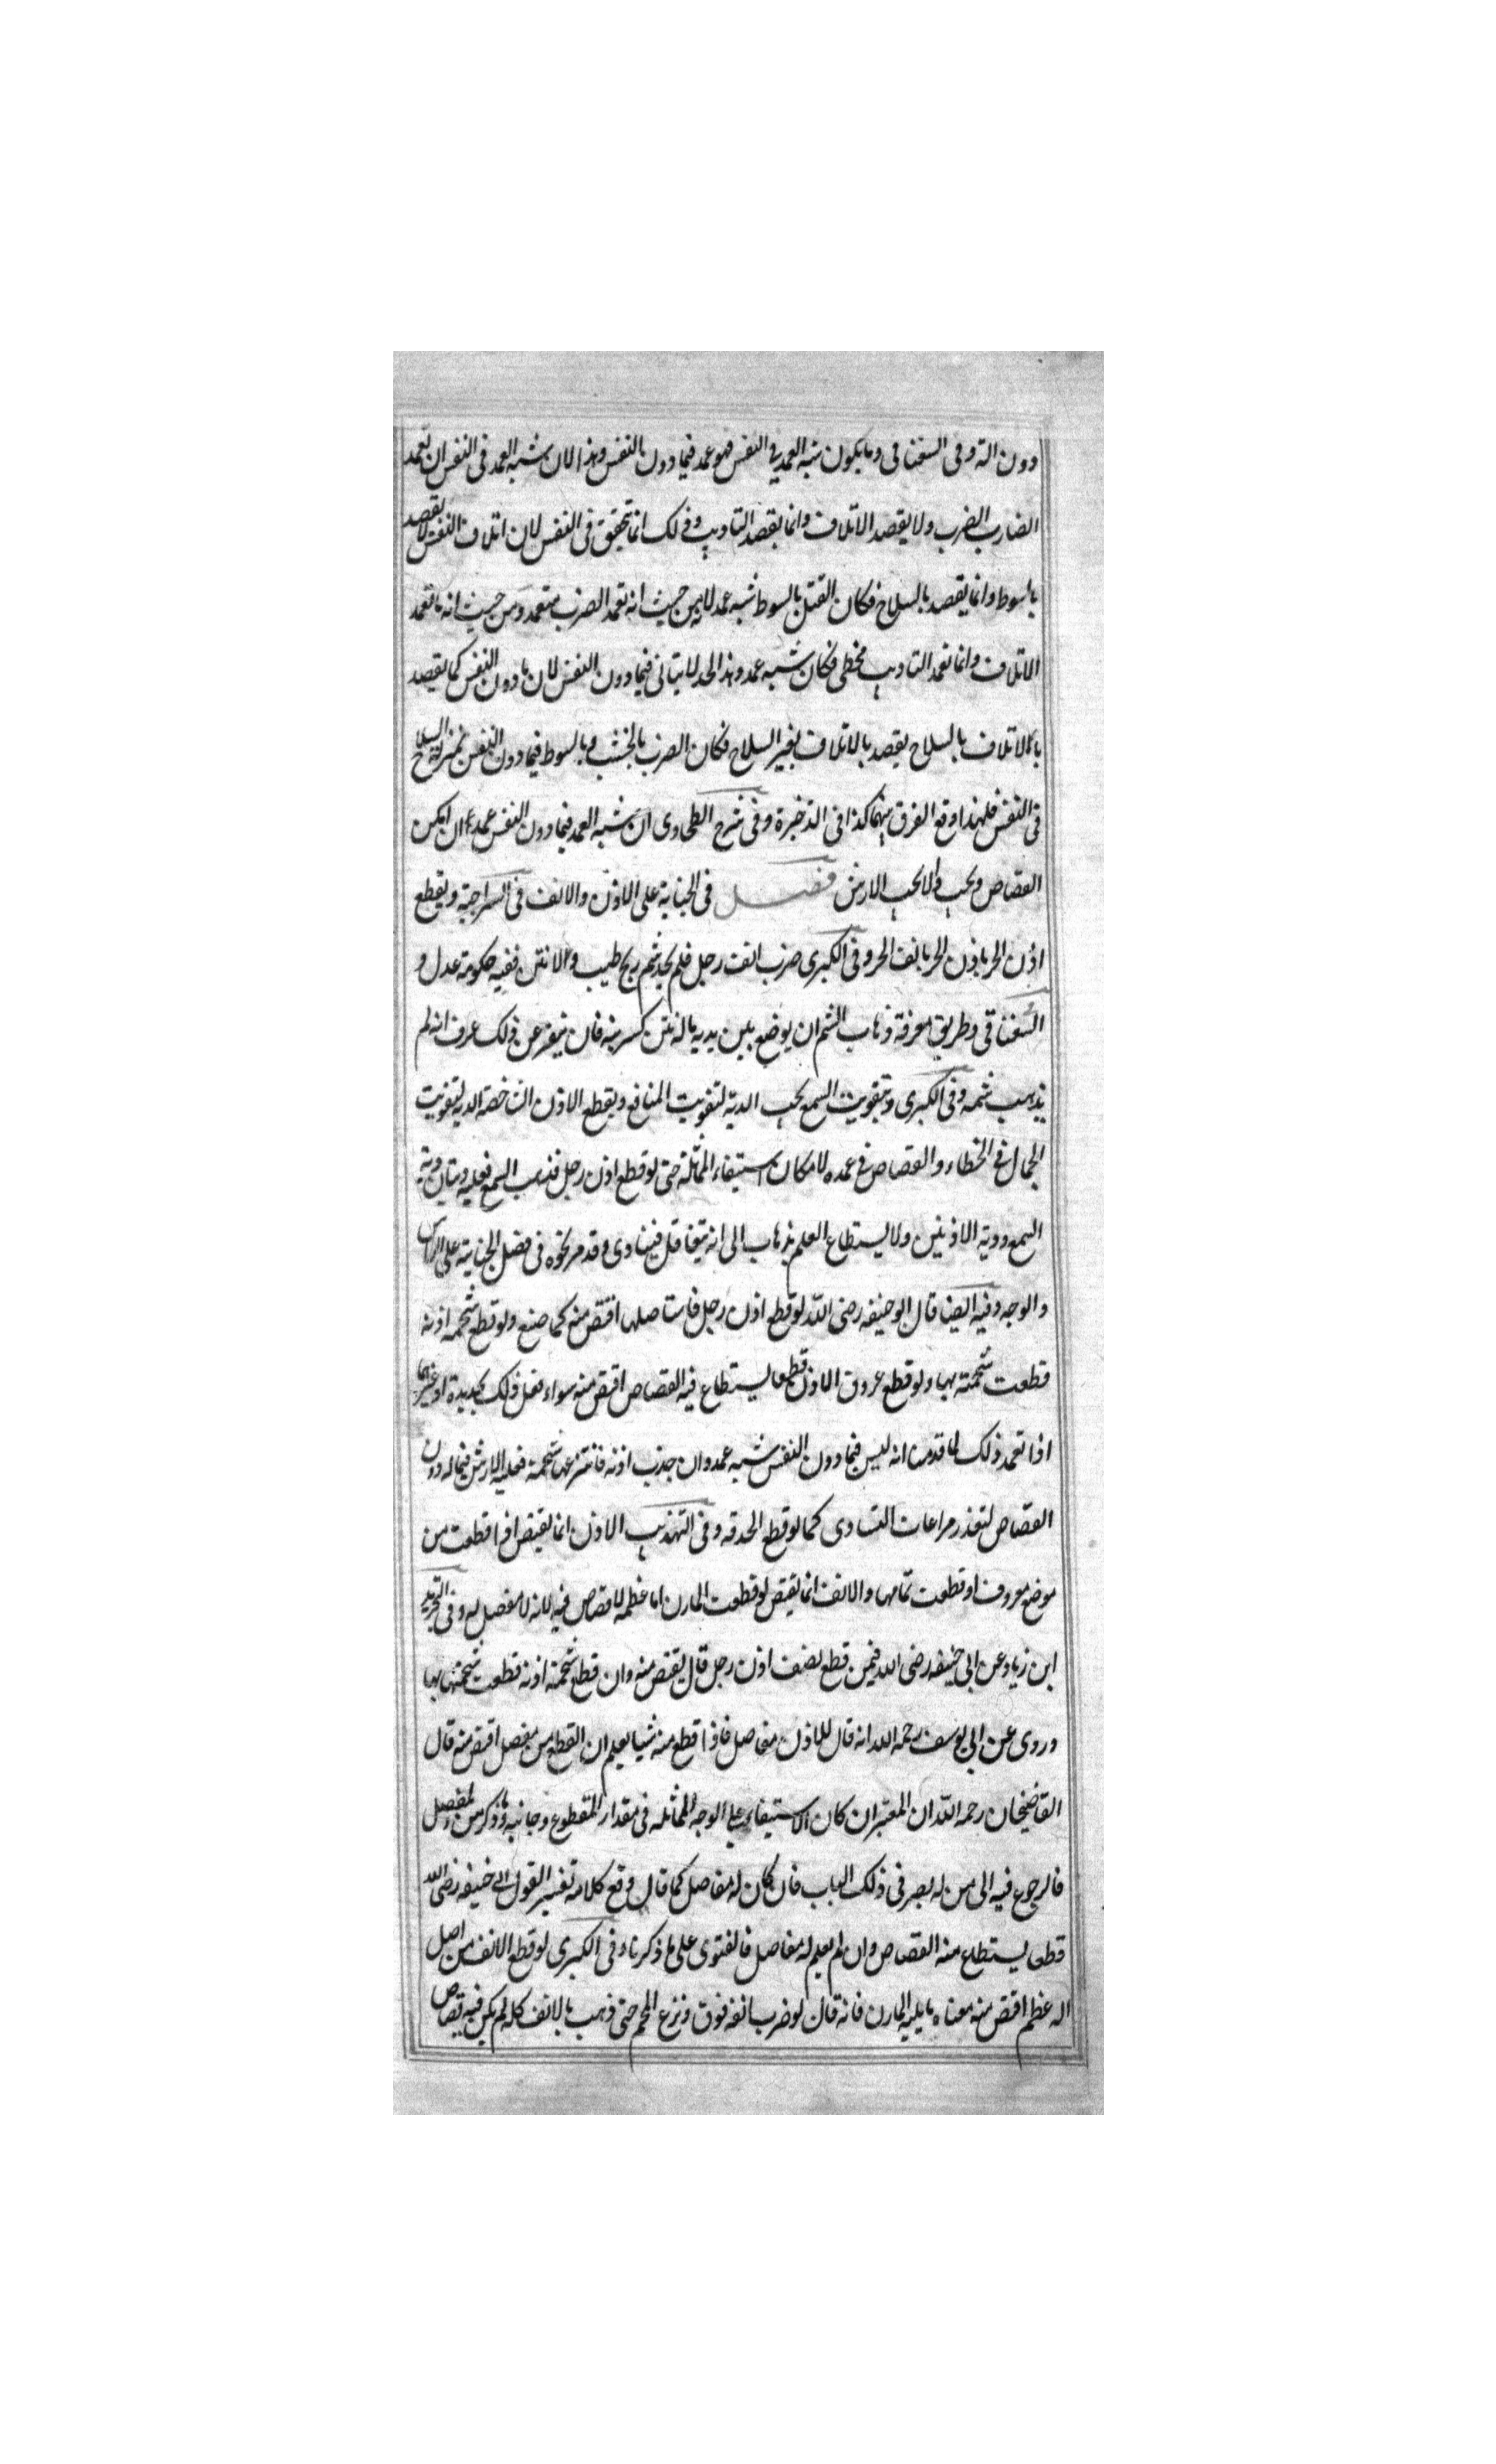 دون الة وفى السغناقى وما يكون شبه العمد فى النفس فهو عمد فيما دون النفس وهذا لان شبه العمد فى النفس ان تعمد
الضارب الضرب ولا يقصد الاتلاف وانما يقصد التاديب وذلك انما يتحقق فى النفس لان اتلاف النفس لا يقصد
بالسوط وانما يقصد بالسلاح فكان القتل بالسوط شبه عمد لانه من حيث انه تعمد الضرب متعمد ومن حيث انه ما تعمد
الاتلاف وانما تعمد التاديب مخطى فكان شبه عمد وهذا الحد لا يتاتى فيما دون النفس لان ما دون النفس كما يقصد
بالاتلاف بالسلاح يقصد بالاتلاف بغير السلاح فكان الضرب بالخشب وبالسوط فيما دون النفس بمنزلة السلاح
فى النفس فلهذا وقع الفرق بينهما كذا فى الذخيرة وفى شرح الطحاوى ان شبه العمد فيما دون النفس عمد ان امكن
القصاص ويجب والا يجب الارش فصل فى الجناية على الاذن والانف فى السراجية ويقطع
اذن الحر باذن الحر بانف الحر وفى الكبرى ضرب انف رجل فلم يجد شم ريح طيب ولا نتن ففيه حكومة عدل و
السغناقى وطريق معرفة ذهاب الشم ان يوضع بين يديه ماله نتن كريه فان نفر عن ذلك عرف انه لم
يذهب شمه وفى الكبرى وبتفويت السمع يجب الدية لتفويت المنافع وبقطع الاذن الشاخصة الدية لتفويت
الجمال فى الخطاء والقصاص فى عمده لامكان استيفاء المماثلة حتى لو قطع اذن رجل فذهب السمع فعليه ديتان دية
السمع ودية الاذنين ولا يستطاع العلم بذهاب الى انه يتغافل فينادى وقد مر نحوه فى فصل الجناية على الراس
والوجه وفيه ايضا قال ابو حنيفه رضى الله لو قطع اذن رجل فاستاصلها اقتص منه كما صنع ولو قطع شحمة اذنه
قطعت شحمته بها ولو قطع عروق الاذن قطعا يستطاع فيه القصاص اقتص منه سواء فعل ذلك بحديدة او غيرها
اذا تعمد ذلك لما قدمنا انه ليس فيما دون النفس شبه عمد وان جذب اذنه فانتزعها شحمة فعليه الارش فيما له دون
القصاص لتعذر مراعات التساوى كما لو قطع الحدقه وفى التهذيب الاذن انما يقتص اذا قطعت من
موضع معروف او قطعت تمامها والانف انما يقتص لو قطعت المارن اما عظمه لا قصاص فيه لانه لا مفصل له وفى التجريد
ابن زياد عن ابى حنيفه رضى الله فيمن قطع نصف اذن رجل قال يقتص منه وان قطع شحمة اذنه قطعت شحمتها بها
وروى عن ابى يوسف رحمه الله انه قال للاذن مفاصل فاذا قطع منه شيا يعلم ان القطع من مفصل اقتص منه قال
القاضيخان رحمه الله ان المعتبر ان كان الاستيفاء على الوجه المماثله فى مقدار المقطوع وجانبه وما ذكر من المفصل
فالرجوع فيه الى من له بصر فى ذلك الباب فان كان له مفاصل كما قال وقع كلامه تفسير القول ابى حنيفه رضى الله
قطى يستطاع منه القصاص وان لم يعلم له مفاصل فالفتوى على ما ذكرنا وفى الكبرى لو قطع الانف من اصل
اله عظم اقتص منه معناه ما يليه المارن فانه قال لو ضرب انفه فوق ونزع اللحم حتى ذهب بالانف كله لم يكن فيه قصاص